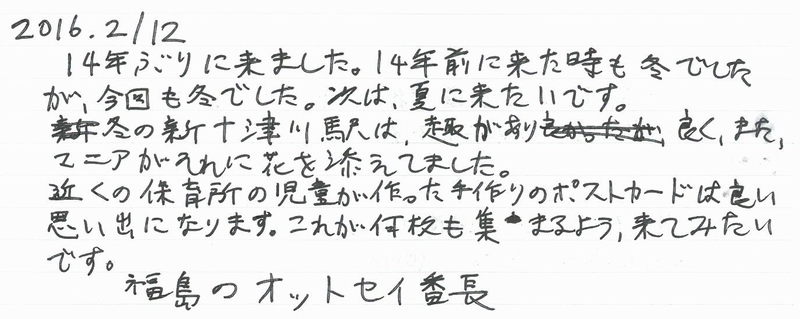 2016.2/12
14年ぶりに来ました。14年前に来た時も冬でした
が、今回も冬でした。次は、夏に来たいです。
冬の新十津川駅は、趣があり良かったが、良く、また、
マニアがそれに花を添えてました。
近くの保育所の児童が作った手作りのポストカードは良い
思い出になります。これが何枚も集まるよう、来てみたい
です。
福島のオットセイ番長